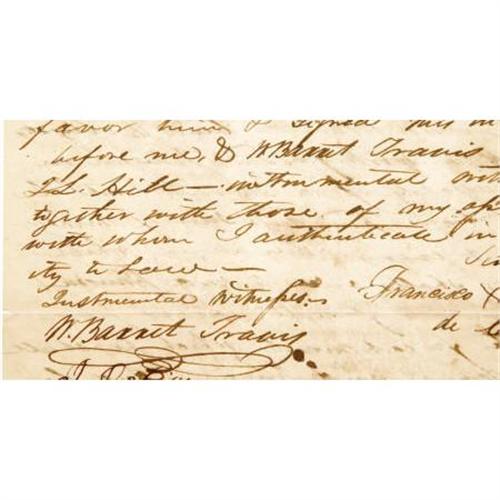 favor him & signed this in
before me, & W. Barret Travis
J.S. Hill — instrumental
together with those of my
with whom I authenticate in
ity to Law —
Instrumental Witnesses — Francisco
W. Barret Travis de